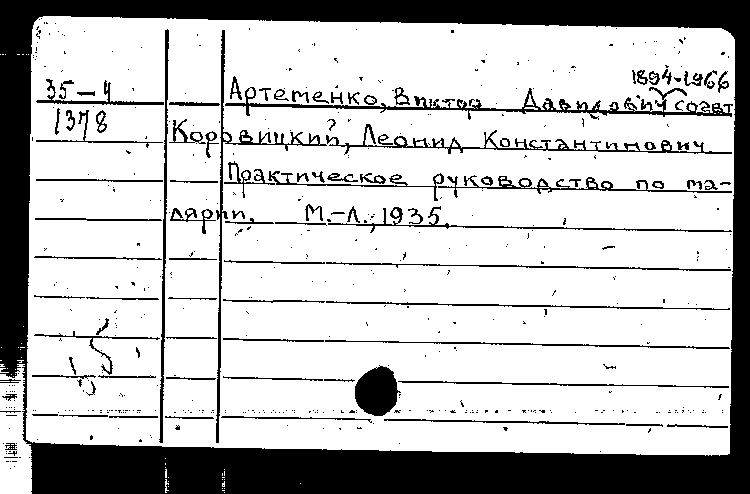 1894-1966
35-4 Артеменко, Виктор Давидович соавт
1378 Коровицкий, Леонид Константинович
Практическое руководство по ма-
лярии. М.-Л., 1935.